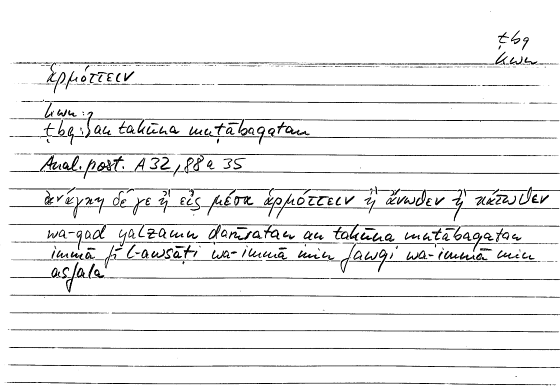 ṭbq
kwn
ἁρμόττειν
kwn:
ṭbq: an takūna muṭābaqatan
Anal. post. A 32, 88 a 35
ἀνάγκη δέ γε ἢ εἰς μέσα ἁρμόττειν ἢ ἄνωθεν ἢ κάτωθεν
wa-qad yalzamu ḍarūratan an takūna muṭābaqatan
immā fī l-awsāṭi wa-immā min fawqi wa-immā min
asfala